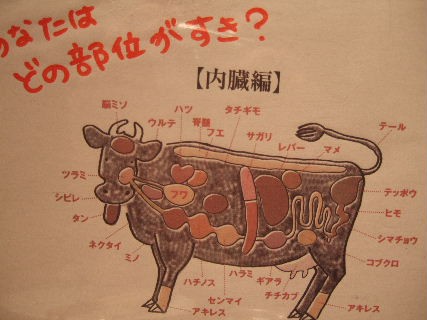 あなたは
どの部位がすき？
【内臓編】
脳ミソ
ウルテ
ハツ
脊髄
フエ
タチギモ
サガリ
レバー
マメ
テール
ツラミ
シビレ
タン
フワ
テッポウ
ヒモ
シマチョウ
コブクロ
ネクタイ
ミノ
ハチノス
センマイ
ハラミ
ギアラ
チチカブ
アキレス
アキレス